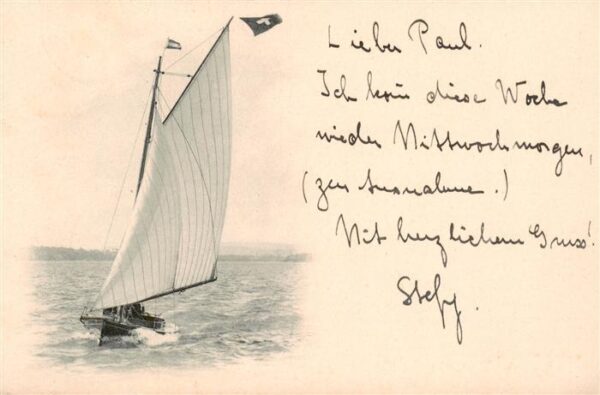 Lieber Paul.
Ich kom diese Woche
wieder Mittwochmorgen,
(zur Ausnahme.)
Mit herzlichem Gruss!
Stefy.